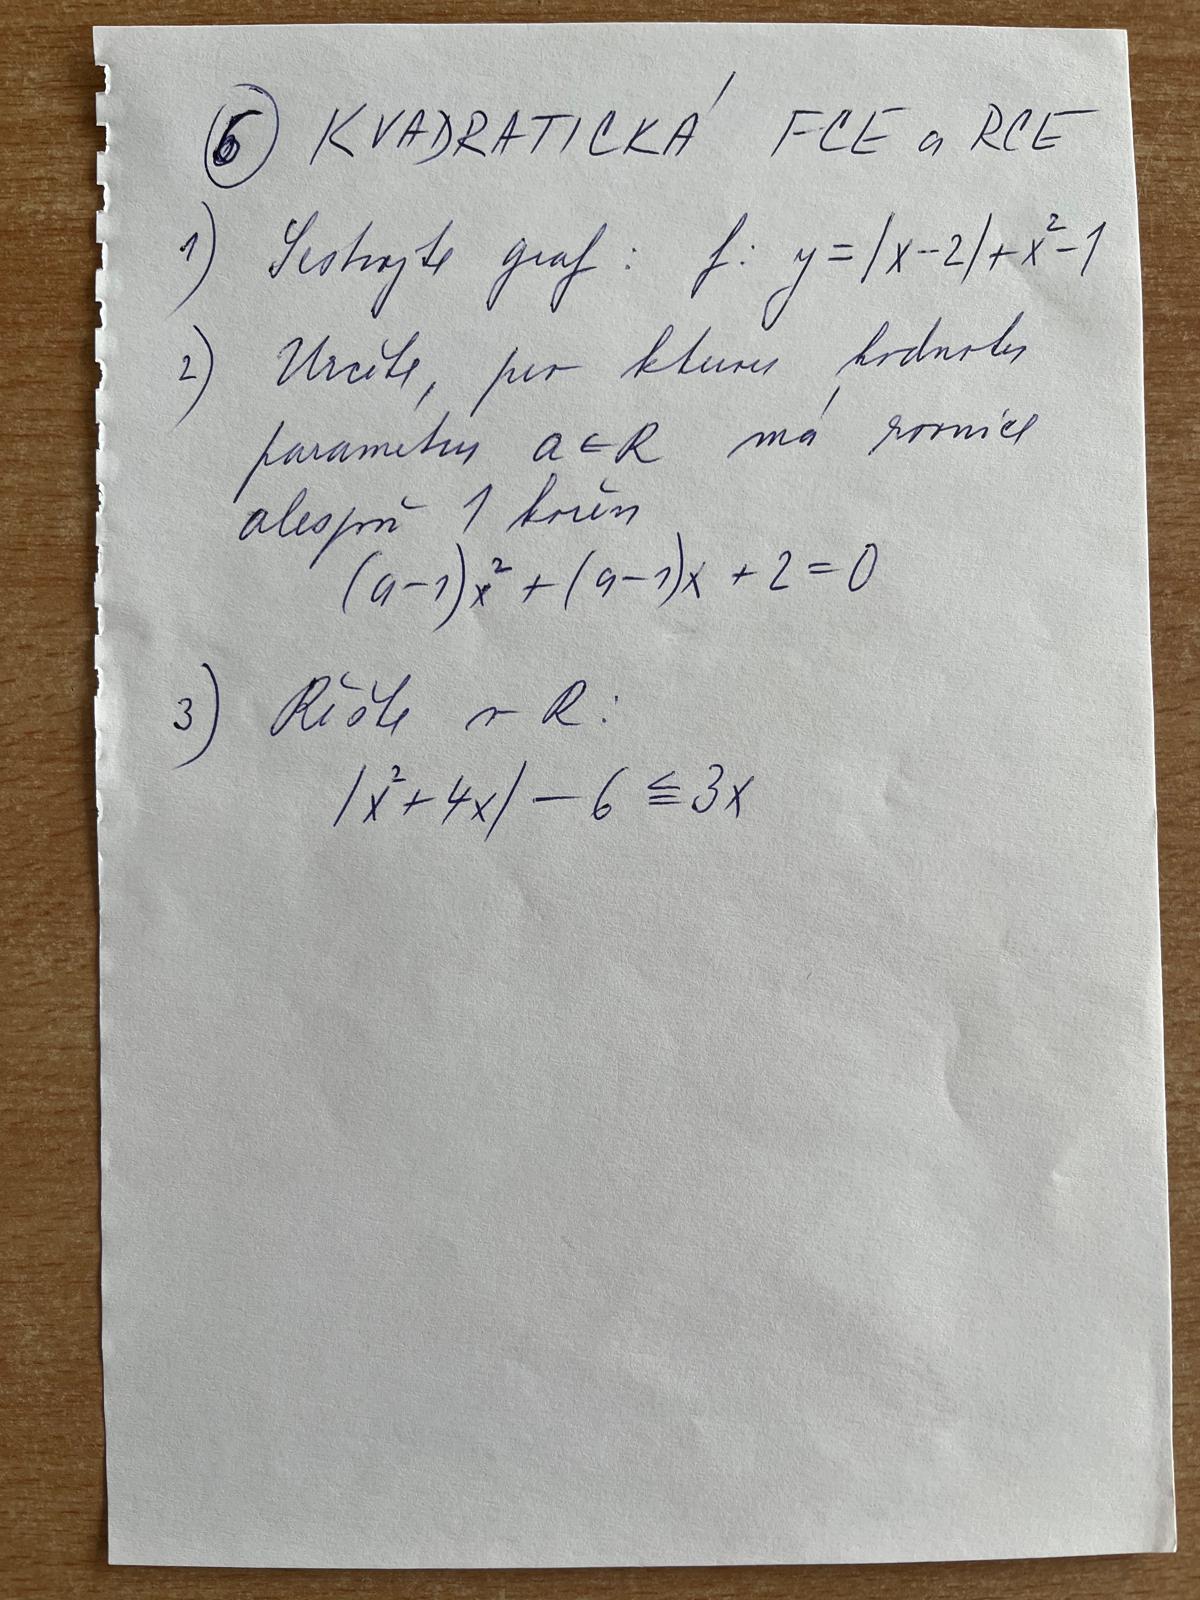 6 KVADRATICKÁ FCE a RCE
1) Sestrojte graf: f: y = |x-2| + x² - 1
2) Určete, pro kterou hodnotu
parametru a ∈ R má rovnice
alespoň 1 kořen
(a-1)x² + (a-1)x + 2 = 0
3) Řešte v R:
|x² + 4x| - 6 ≦ 3x